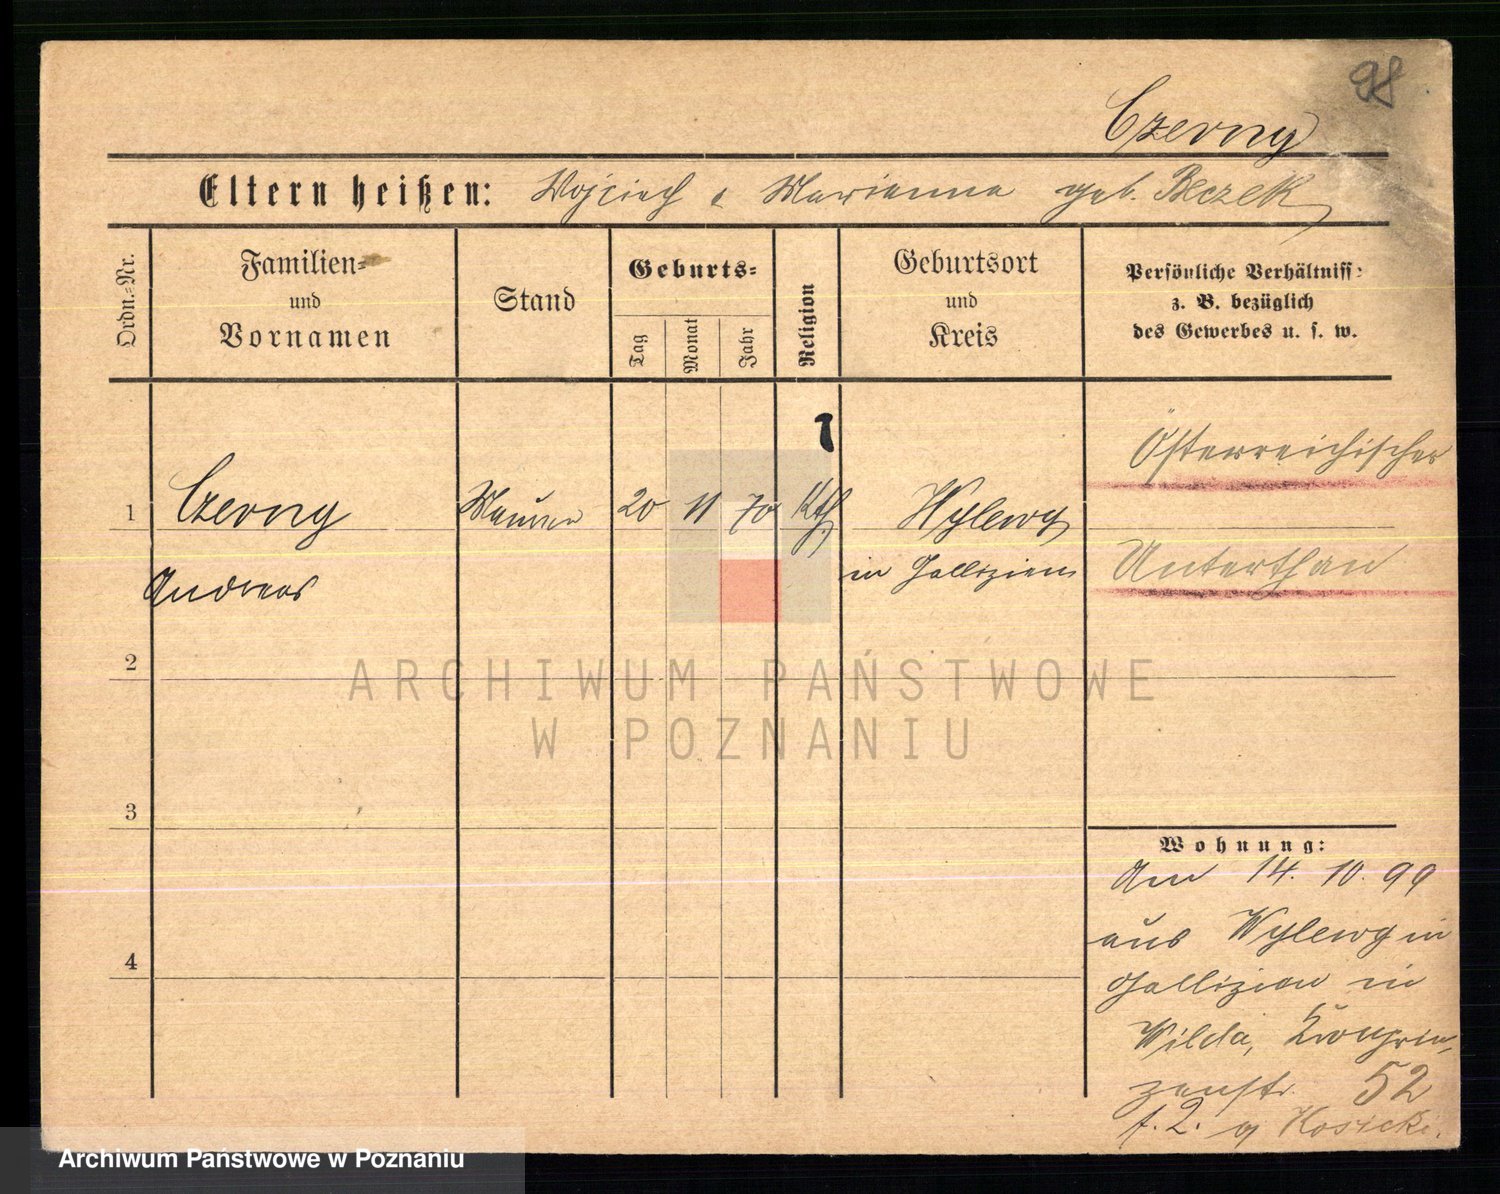 98
Czerny
Eltern heißen: Wojciech u Marianna geb. Beczek
Ordn.=Nr.
Familien=
und
Vornamen
Stand
Geburts=
Tag
Monat
Jahr
Religion
Geburtsort
und
Kreis
Persönliche Verhältniss:
z. B. bezüglich
des Gewerbes u. s. w.
1 Czerny Maurer 20 11 70 Kth. Wylewy Österreichischer
Andreas in Gallizien Unterthan
2
ARCHIWUM PAŃSTWOWE
W POZNANIU
3
Wohnung:
Am 14. 10. 99
4 aus Wylewy in
Gallizien in
Wilda, Kronprin,
zenstr. 52
Kosicki.
Archiwum Państwowe w Poznaniu